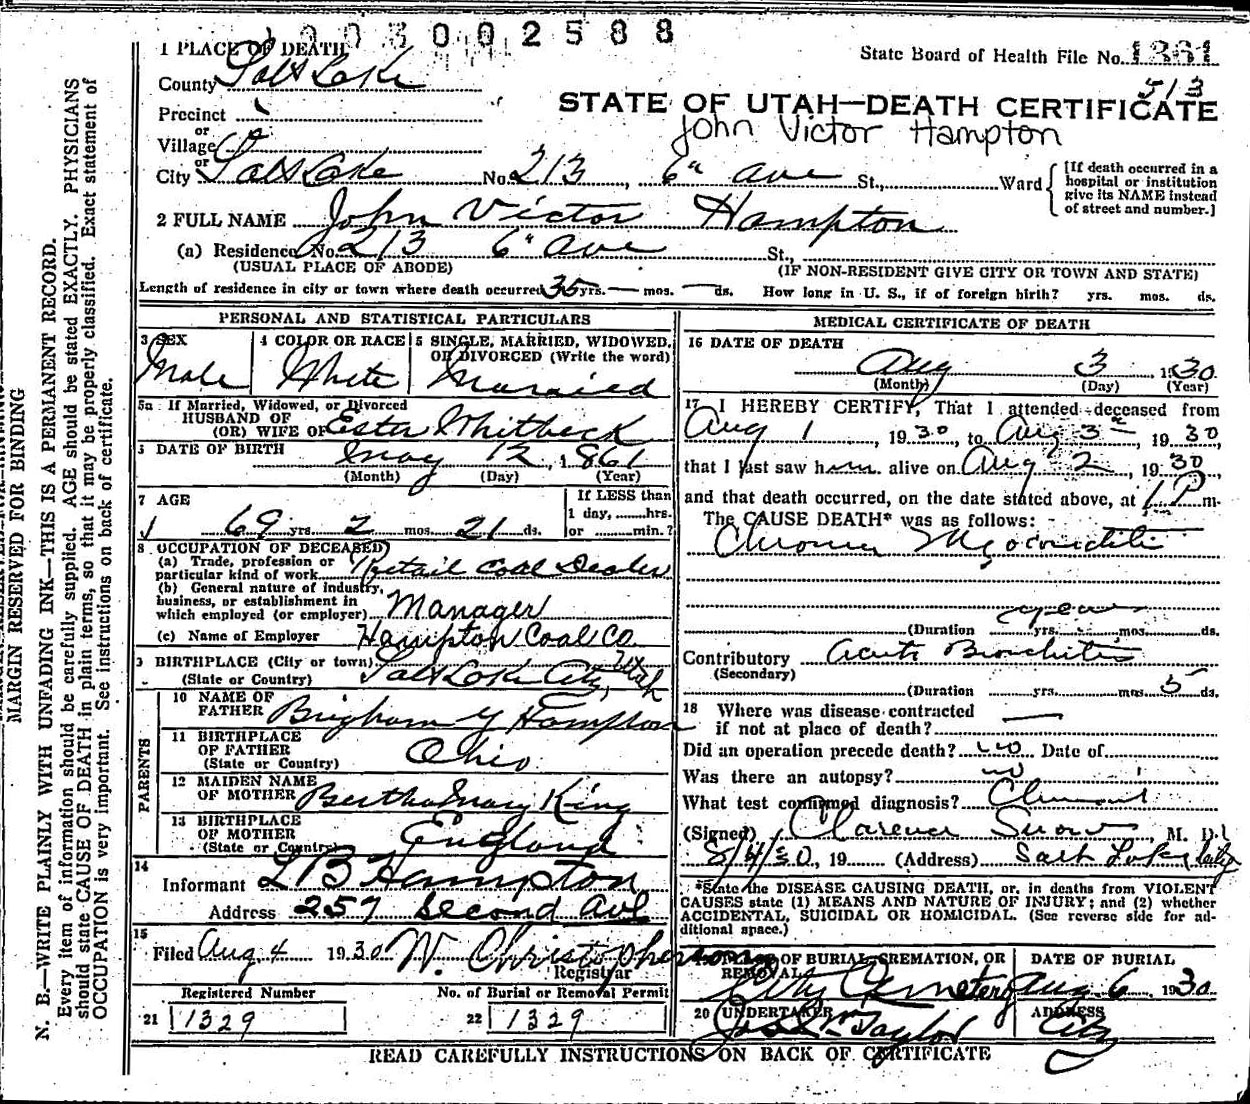 003002588
1 PLACE OF DEATH
State Board of Health File No. 1361
County Salt Lake
513
STATE OF UTAH—DEATH CERTIFICATE
Precinct
John Victor Hampton
or
Village
or
City Salt Lake No. 213, 6" Ave St., Ward
[If death occurred in a hospital or institution give its NAME instead of street and number.]
2 FULL NAME John Victor Hampton
(a) Residence No. 213 6" Ave St.,
(USUAL PLACE OF ABODE) (IF NON-RESIDENT GIVE CITY OR TOWN AND STATE)
Length of residence in city or town where death occurred 35 yrs. — mos. — ds. How long in U. S., if of foreign birth? yrs. mos. ds.
PERSONAL AND STATISTICAL PARTICULARS
3 SEX
Male
4 COLOR OR RACE
White
5 SINGLE, MARRIED, WIDOWED,
OR DIVORCED (Write the word)
Married
5a If Married, Widowed, or Divorced
HUSBAND OF
(OR) WIFE OF Ester Whitbeck
DATE OF BIRTH
May 12, 1861
(Month) (Day) (Year)
7 AGE
69 yrs. 2 mos. 21 ds.
If LESS than
1 day, hrs.
or min.?
8 OCCUPATION OF DECEASED
(a) Trade, profession or
particular kind of work Retail Coal Dealer
(b) General nature of industry,
business, or establishment in
which employed (or employer) Manager
(c) Name of Employer Hampton Coal Co.
9 BIRTHPLACE (City or town)
(State or Country) Salt Lake City, Utah
PARENTS
10 NAME OF
FATHER Brigham Y Hampton
11 BIRTHPLACE
OF FATHER
(State or Country) Ohio
12 MAIDEN NAME
OF MOTHER Bertha Mary King
13 BIRTHPLACE
OF MOTHER
(State or Country) England
14
Informant L B Hampton
Address 257 Second Ave
15
Filed Aug. 4 1930 W. Christopherson
Registrar
Registered Number
21 1329
No. of Burial or Removal Permit
22 1329
MEDICAL CERTIFICATE OF DEATH
16 DATE OF DEATH
Aug 3 1930
(Month) (Day) (Year)
17 I HEREBY CERTIFY, That I attended deceased from
Aug 1, 1930, to Aug 3, 1930
that I last saw him alive on Aug 2, 1930
and that death occurred, on the date stated above, at 1 P m.
The CAUSE DEATH* was as follows:
Chronic Myocarditis
years
(Duration yrs. mos. ds.
Contributory Acute Bronchitis
(Secondary)
(Duration yrs. mos. 5 ds.
18 Where was disease contracted
if not at place of death? —
Did an operation precede death? no Date of
Was there an autopsy? no
What test confirmed diagnosis? Clinical
(Signed) Clarence Snow, M. D.
8/4/30, 19 (Address) Salt Lake City
*State the DISEASE CAUSING DEATH, or, in deaths from VIOLENT
CAUSES state (1) MEANS AND NATURE OF INJURY; and (2) whether
ACCIDENTAL, SUICIDAL OR HOMICIDAL. (See reverse side for ad-
ditional space.)
19 PLACE OF BURIAL, CREMATION, OR
REMOVAL
City Cemetery
DATE OF BURIAL
Aug 6, 1930
20 UNDERTAKER
Jos. Wm Taylor
ADDRESS
City
READ CAREFULLY INSTRUCTIONS ON BACK OF CERTIFICATE
MARGIN RESERVED FOR BINDING
N. B.—WRITE PLAINLY WITH UNFADING INK—THIS IS A PERMANENT RECORD.
Every item of information should be carefully supplied. AGE should be stated EXACTLY. PHYSICIANS
should state CAUSE OF DEATH in plain terms, so that it may be properly classified. Exact statement of
OCCUPATION is very important. See instructions on back of certificate.